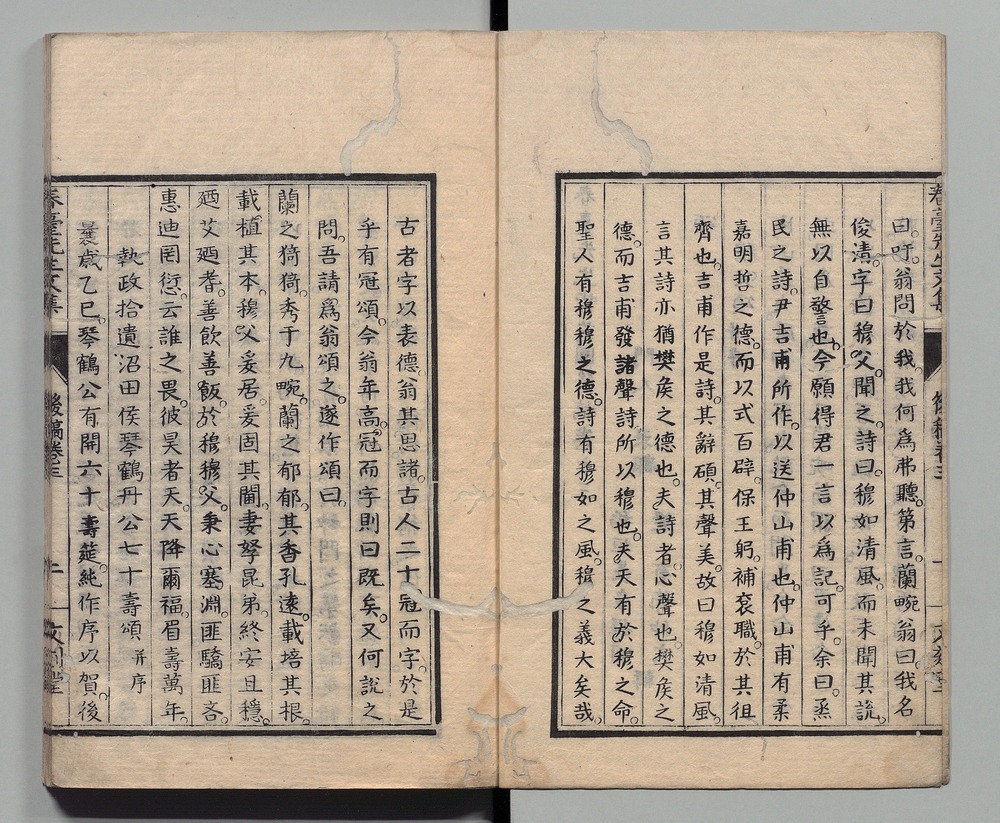 曰。吁。翁問於我。我何爲弗聽。第言。蘭畹翁曰。我名
俊清。字曰穆父。聞之。詩曰。穆如清風。而未聞其說。
無以自警也。今願得君一言。以爲記。可乎。余曰。烝
民之詩。尹吉甫所作。以送仲山甫也。仲山甫有柔
嘉明哲之德。而以式百辟。保王躬。補袞職。於其徂
齊也。吉甫作是詩。其辭碩。其聲美。故曰穆如清風。
言其詩亦猶樊矦之德也。夫詩者。心聲也。樊矦之
德。而吉甫發諸聲詩。所以穆也。夫天有於穆之命。
聖人有穆穆之德。詩有穆如之風。穆之義大矣哉。
古者字以表德。翁其思諸。古人二十冠而字。於是
乎有冠頌。今翁年高。冠而字則曰既矣。又何說之
問。吾請爲翁頌之。遂作頌曰。
蘭之猗猗。秀于九畹。蘭之郁郁。其香孔遠。載培其根。
載植其本。穆父爰居。爰固其閫。妻孥昆弟。終安且穩。
廼艾廼耆。善飲善飯。於穆穆父。秉心塞淵。匪驕匪吝。
惠迪罔愆。云誰之畏。彼昊者天。天降爾福。眉壽萬年。
執政拾遺沼田侯琴鶴丹公七十壽頌 并序
曩歲乙巳。琴鶴公有開六十壽筵。純作序以賀。後
春臺先生文集
後稿卷三